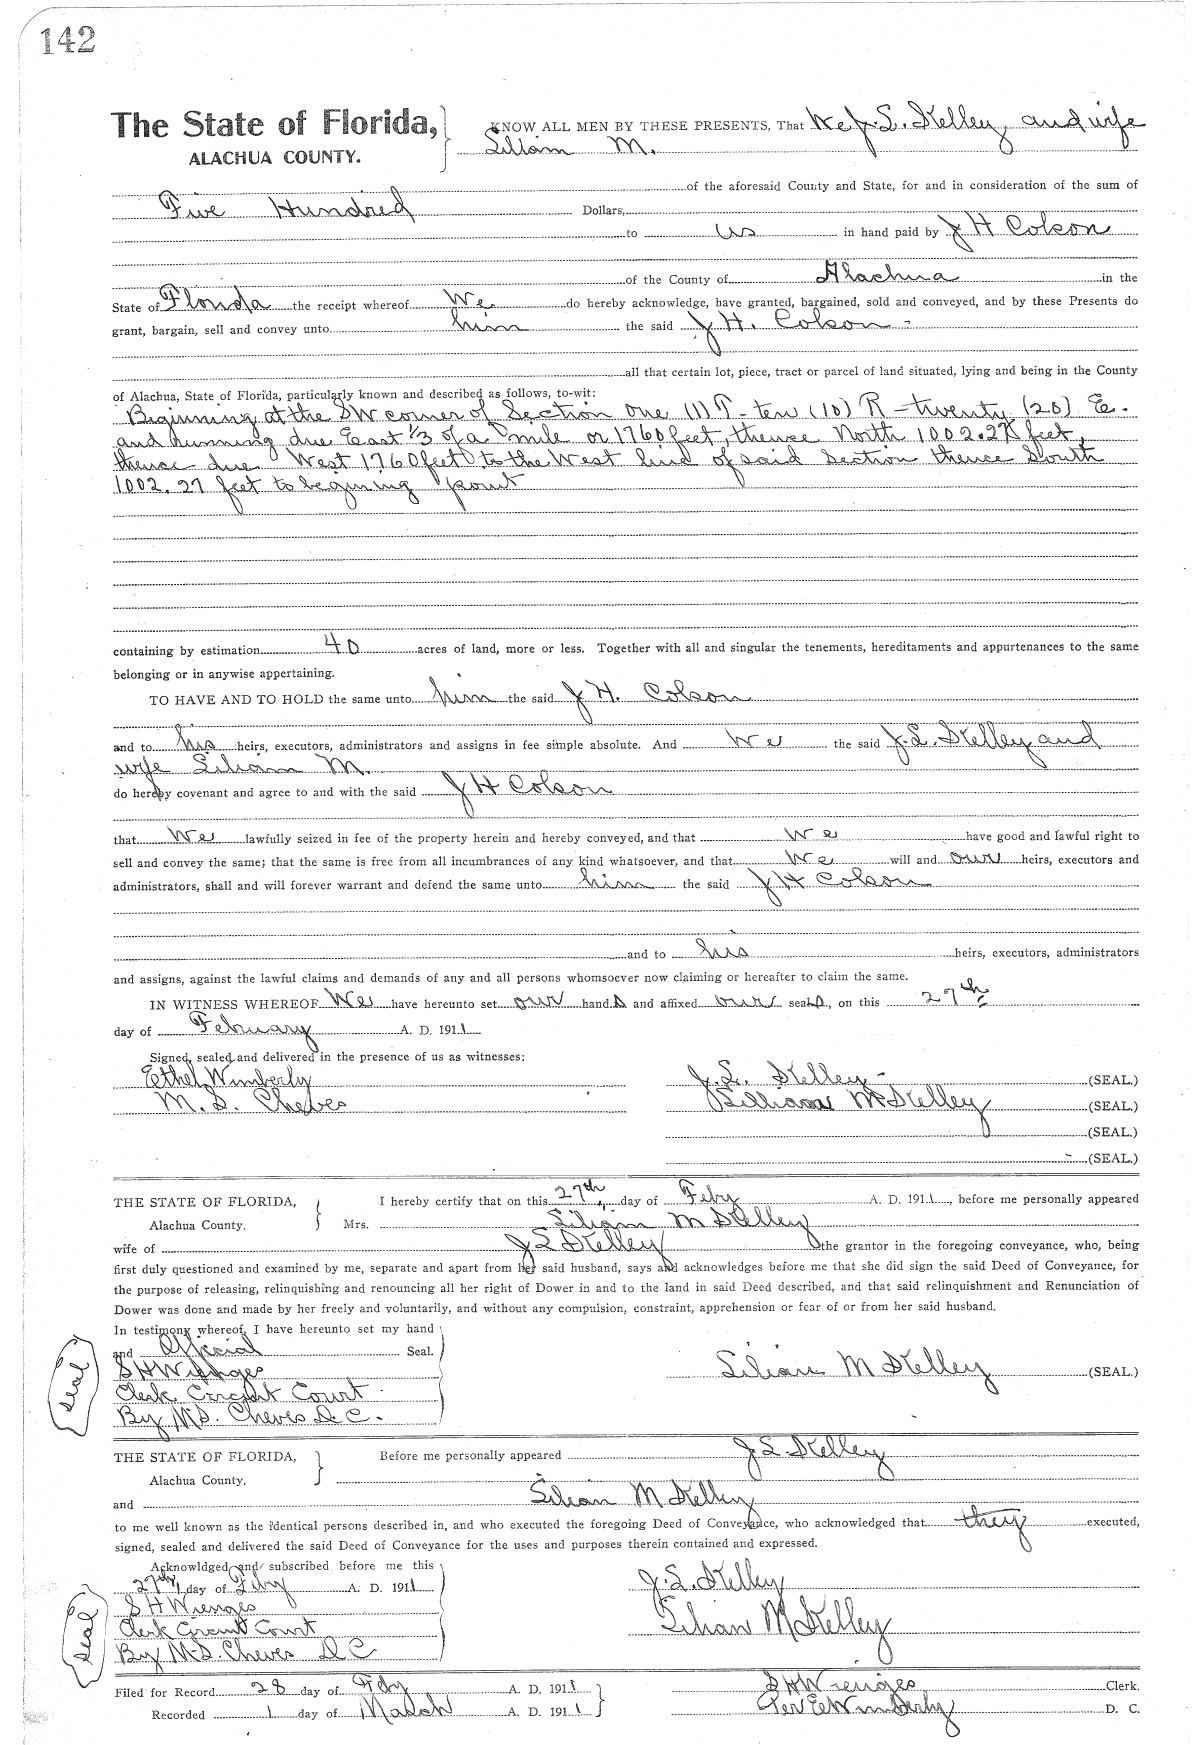 142
The State of Florida, KNOW ALL MEN BY THESE PRESENTS, That We J. L. Kelley, and wife
ALACHUA COUNTY. Lilliam M.
of the aforesaid County and State, for and in consideration of the sum of
Five Hundred Dollars,
to us in hand paid by J H Colson
of the County of Alachua in the
State of Florida the receipt whereof We do hereby acknowledge, have granted, bargained, sold and conveyed, and by these Presents do
grant, bargain, sell and convey unto him the said J H. Colson -
all that certain lot, piece, tract or parcel of land situated, lying and being in the County
of Alachua, State of Florida, particularly known and described as follows, to-wit:
Beginning at the SW corner of Section one (1) T - ten (10) R - twenty (20) E.
and running due East 1/3 of a mile or 1760 feet, thence North 1002.27 feet,
thence due West 1760 feet to the West line of said Section thence South
1002.27 feet to begining point
containing by estimation 40 acres of land, more or less. Together with all and singular the tenements, hereditaments and appurtenances to the same
belonging or in anywise appertaining.
TO HAVE AND TO HOLD the same unto him the said J H. Colson
and to his heirs, executors, administrators and assigns in fee simple absolute. And We the said J. L. Kelley and
wife Liliam M.
do hereby covenant and agree to and with the said J H Colson
that We lawfully seized in fee of the property herein and hereby conveyed, and that We have good and lawful right to
sell and convey the same; that the same is free from all incumbrances of any kind whatsoever, and that We will and our heirs, executors and
administrators, shall and will forever warrant and defend the same unto him the said J H Colson
and to his heirs, executors, administrators
and assigns, against the lawful claims and demands of any and all persons whomsoever now claiming or hereafter to claim the same.
IN WITNESS WHEREOF We have hereunto set our hands and affixed our seals, on this 27th
day of February A. D. 1911
Signed, sealed and delivered in the presence of us as witnesses:
Ethel Wimberly J. L. Kelley - (SEAL.)
M. S. Cheves Lillian M Kelley (SEAL.)
(SEAL.)
(SEAL.)
THE STATE OF FLORIDA, I hereby certify that on this 27th day of Feby A. D. 1911, before me personally appeared
Alachua County. Mrs. Liliam M Kelley
wife of J L Kelley the grantor in the foregoing conveyance, who, being
first duly questioned and examined by me, separate and apart from her said husband, says and acknowledges before me that she did sign the said Deed of Conveyance, for
the purpose of releasing, relinquishing and renouncing all her right of Dower in and to the land in said Deed described, and that said relinquishment and Renunciation of
Dower was done and made by her freely and voluntarily, and without any compulsion, constraint, apprehension or fear of or from her said husband.
In testimony whereof, I have hereunto set my hand
and Official Seal.
Seal
S H Wienges Lilian M Kelley (SEAL.)
Clerk Circuit Court
By M. S. Cheves D C.
THE STATE OF FLORIDA, Before me personally appeared J L Kelley
Alachua County.
and Lilian M Kelley
to me well known as the identical persons described in, and who executed the foregoing Deed of Conveyance, who acknowledged that they executed,
signed, sealed and delivered the said Deed of Conveyance for the uses and purposes therein contained and expressed.
Acknowldged and subscribed before me this
27th day of Feby A. D. 1911 J. L. Kelley
Seal
S H Wienges
Clerk Circuit Court Lilian M Kelley
By M. S. Cheves D C
Filed for Record 28 day of Feby A. D. 1911 S H Wienges Clerk.
Recorded 1 day of March A. D. 1911 Per E Wimberly D. C.